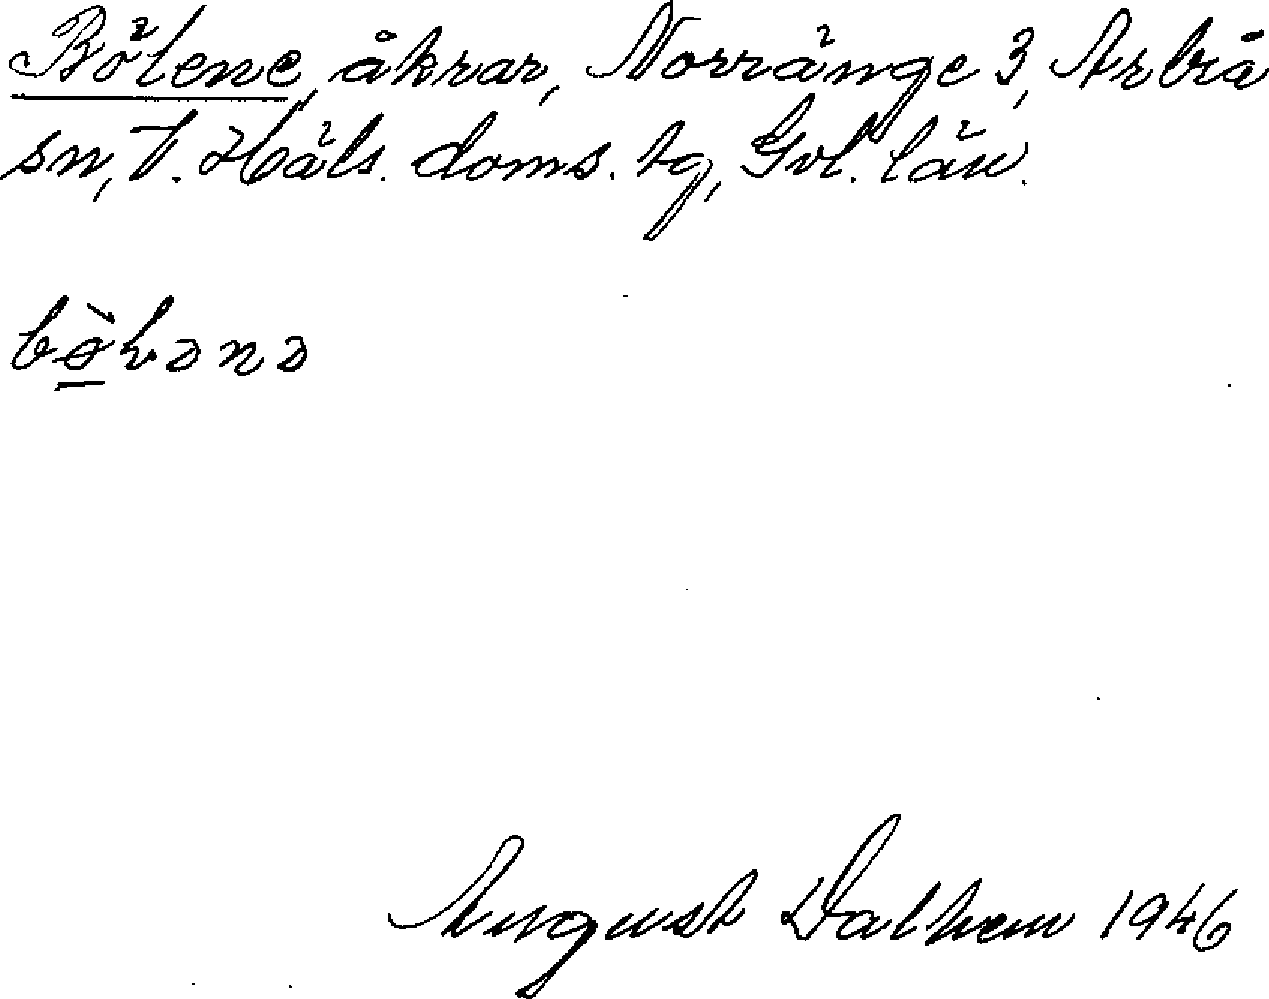 Bölene, åkrar, Norränge 3, Arbrå
sn, V. Häls. doms. tg, Gvl. län.
bø̀lənə
August Dalhem 1946